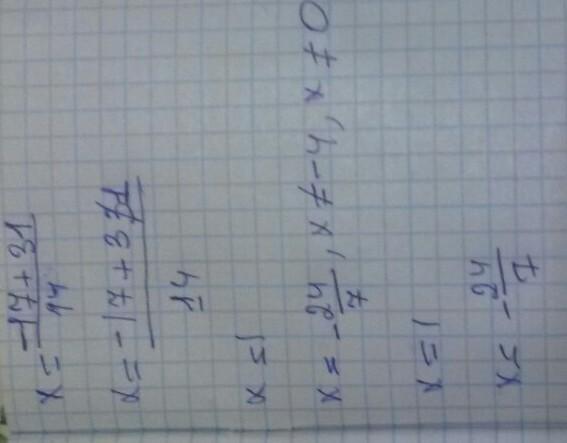 x = -17+31/14
x = -17+31/14
x = 1
x = -24/7, x ≠ -4, x ≠ 0
x = 1
x = -24/7